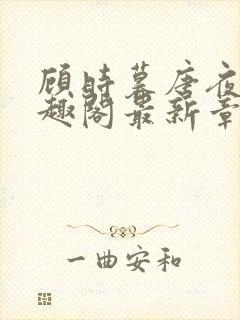 顾时暮唐夜
趣阁最新章
一曲安和